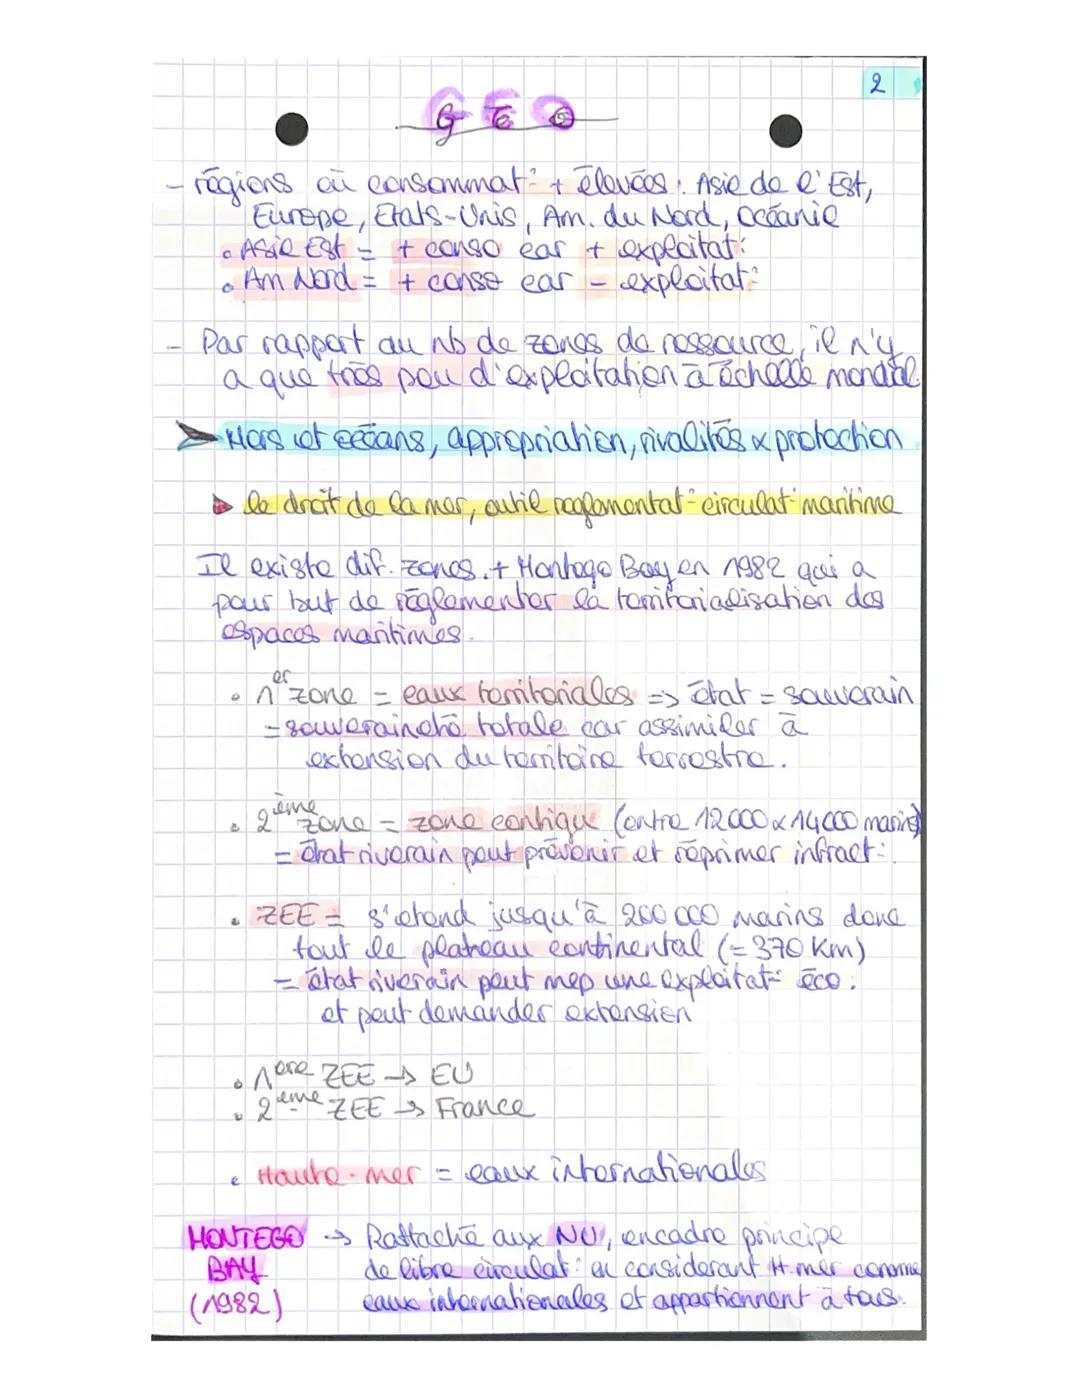 2
GEO
- régions où consommat° + élevées : Asie de l'Est,
Europe, Etats-Unis, Am. du Nord, Océanie
• Asie Est = + conso car + exploitat°
• Am Nord = + conso car - exploitat°
- Par rapport au nb de zones de ressource, il n'y
a que très peu d'exploitation à échelle mondial.
➤ Mers et océans, appropriation, rivalités & protection
▸ le droit de la mer, outil reglementat° circulat° maritime
Il existe dif. zones. + Montego Bay en 1982 qui a
pour but de réglementer la territorialisation des
espaces maritimes.
• 1er zone = eaux territoriales => état = souverain
= souveraineté totale car assimiler à
extension du territoire terrestre.
• 2ème zone = zone contigue (entre 12000 & 14000 marins)
= état riverain peut prévenir et réprimer infract°.
• ZEE = s'etend jusqu'à 200 000 marins donc
tout le plateau continental (= 370 Km)
= état riverain peut mep une exploitat° éco.
et peut demander extension
• 1ère ZEE → EU
• 2ème ZEE → France
• Haute-mer = eaux internationales
MONTEGO → Rattaché aux NU, encadre principe
BAY de libre circulat° en considerant H. mer comme
(1982) eaux internationales et appartiennent à tous.